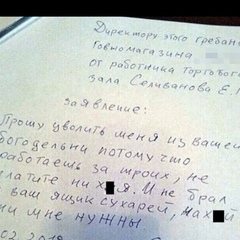 Директору этого гребан
Говномагазина
от работника торгового
зала Селиванова Е.
Заявление:
Прошу уволить меня из вашей
богодельни потому что
работаешь за троих, не
платите ни х я. И не брал
ваш ящик сухарей, нах й
ни мне нужны
02.